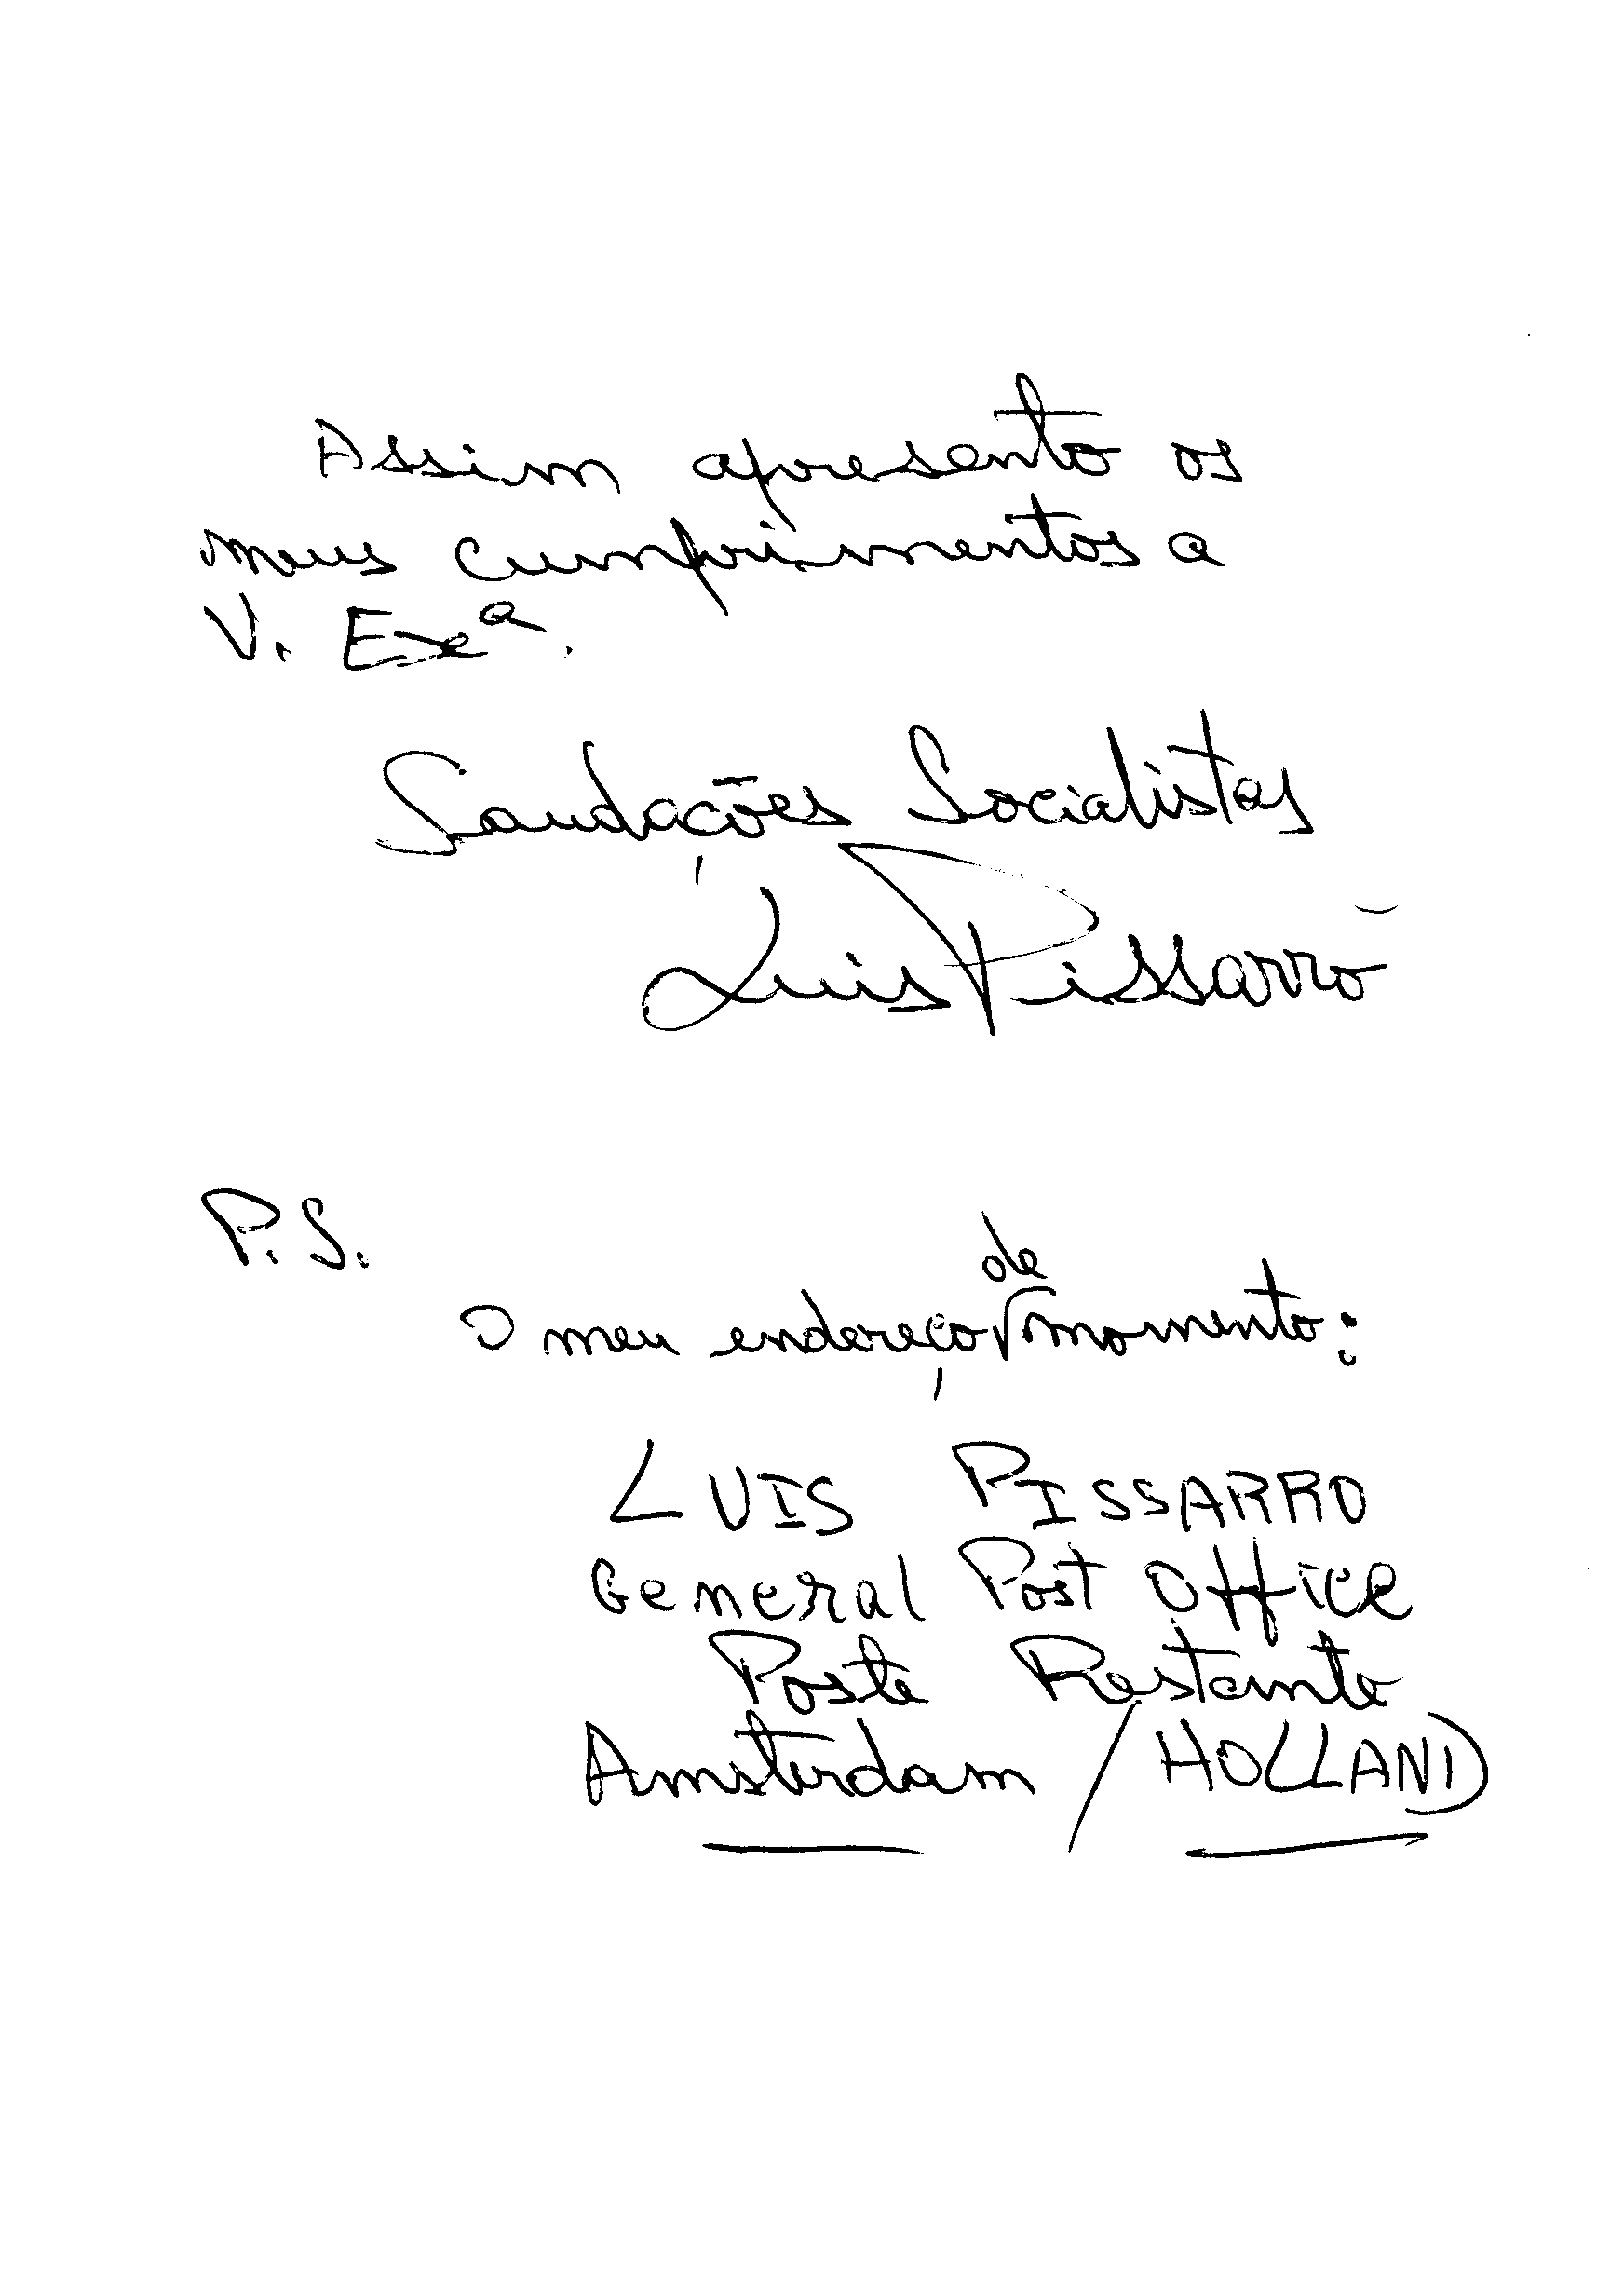 Assim apresento os
meus cumprimentos a
V. Exª.
Saudações Socialistas
Luis Pissarro
P.S.
O meu endereço de momento:
LUIS PISSARRO
General Post Office
Poste Restante
Amsterdam / HOLLAND